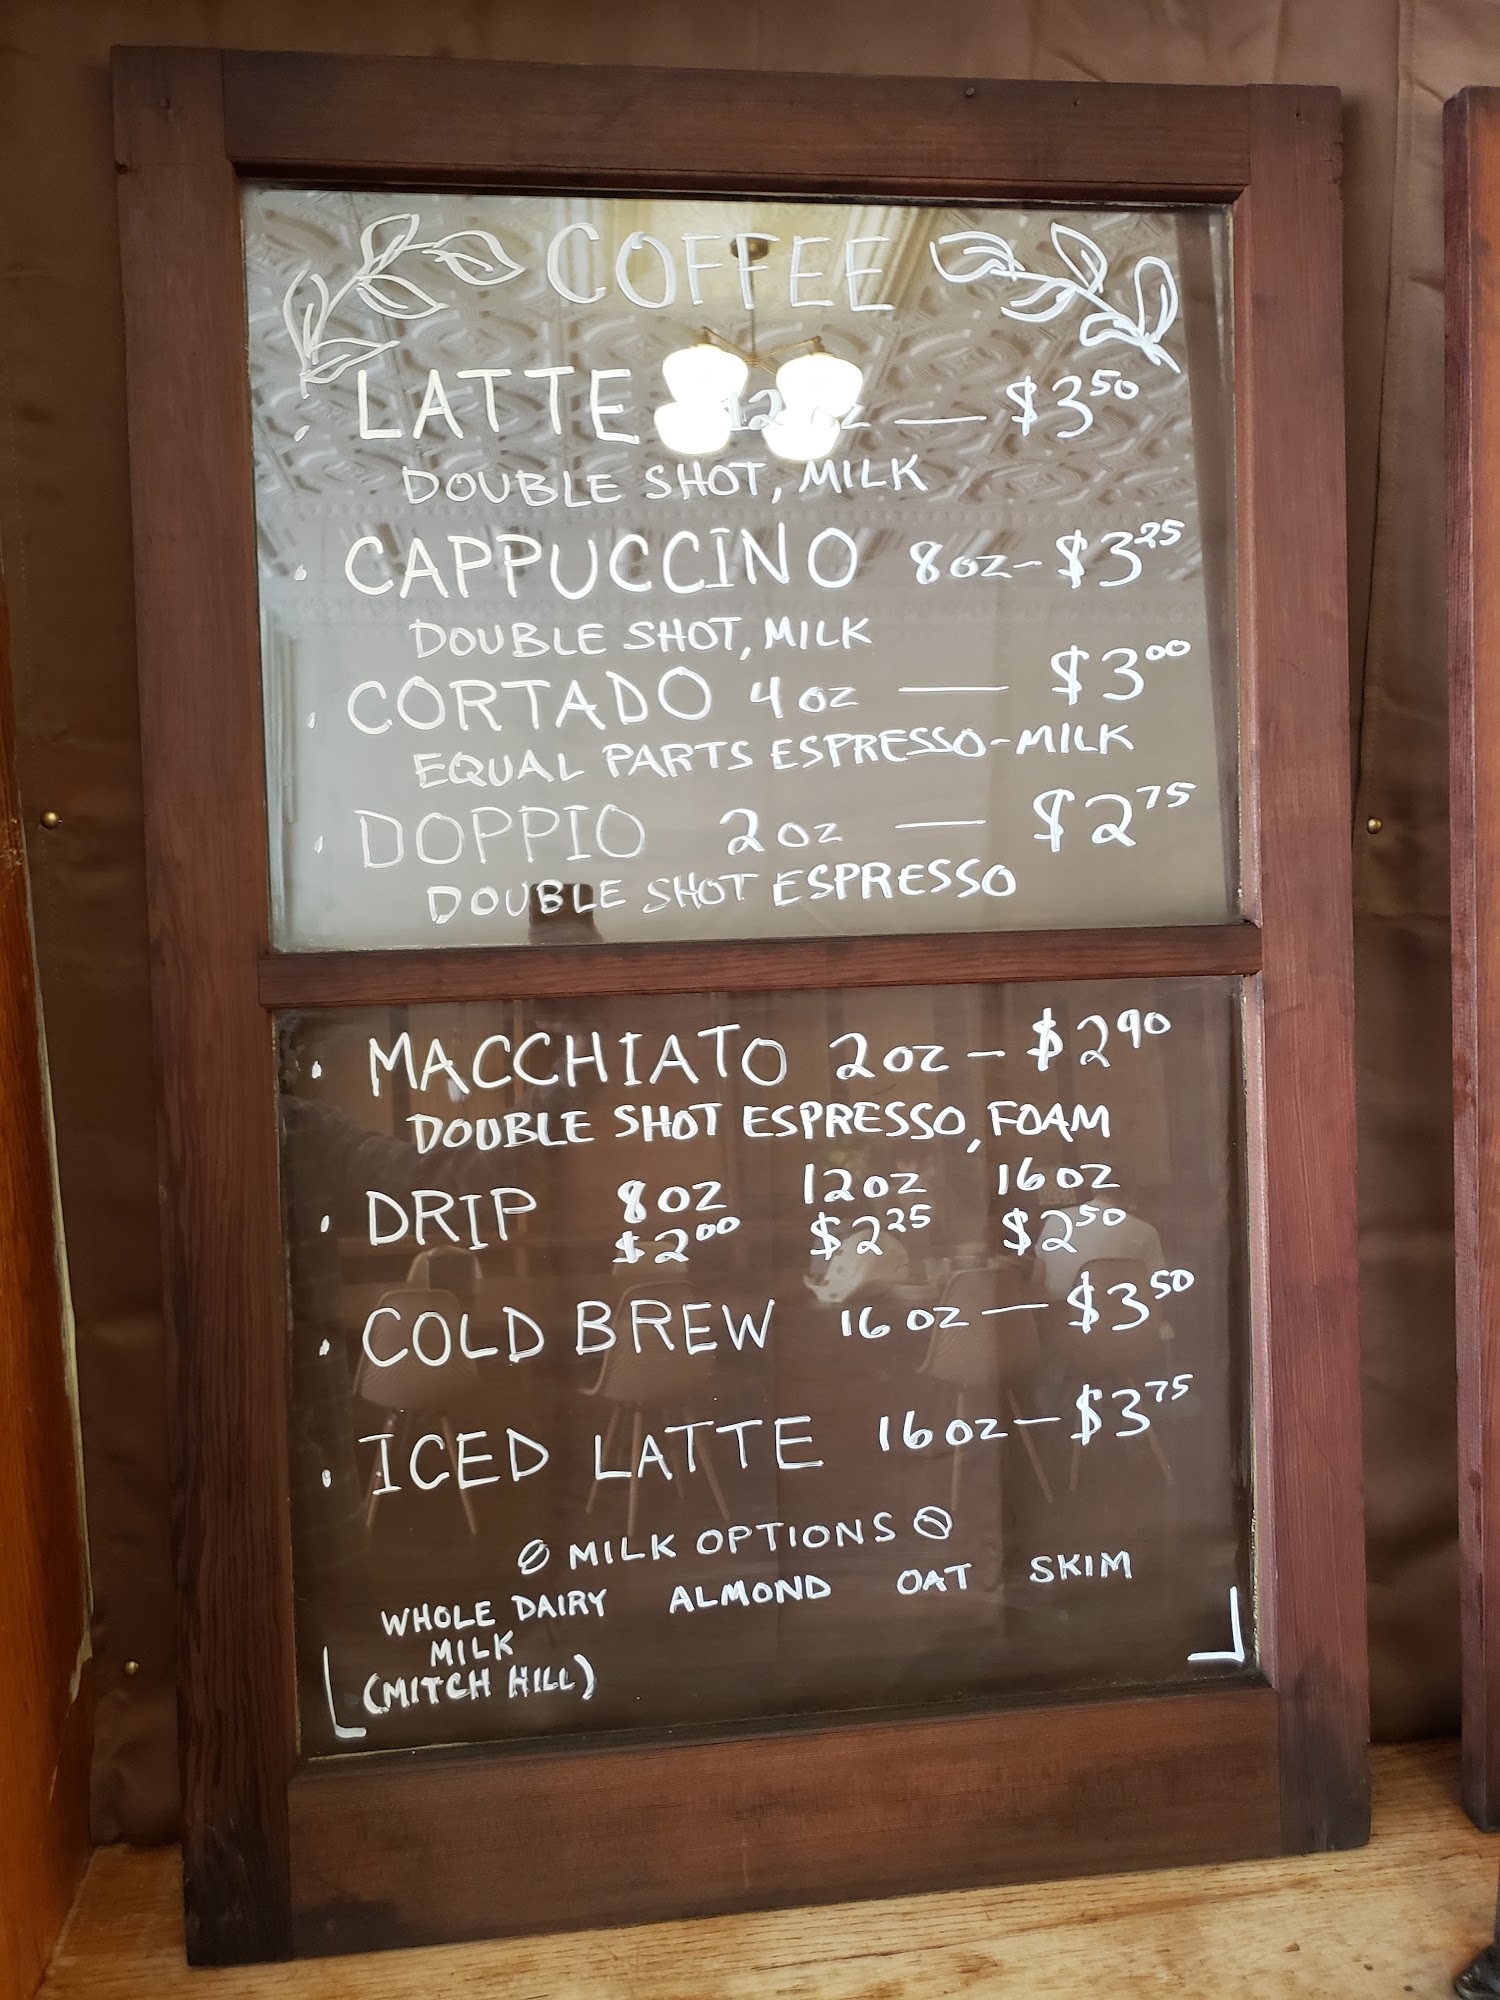 COFFEE
LATTE 12 oz — $3.50
DOUBLE SHOT, MILK
CAPPUCCINO 8 oz - $3.25
DOUBLE SHOT, MILK
CORTADO 4 oz — $3.00
EQUAL PARTS ESPRESSO-MILK
DOPPIO 2 oz — $2.75
DOUBLE SHOT ESPRESSO
MACCHIATO 2 oz — $2.90
DOUBLE SHOT ESPRESSO, FOAM
DRIP 8 oz 12 oz 16 oz
$2.00 $2.25 $2.50
COLD BREW 16 oz — $3.50
ICED LATTE 16 oz — $3.75
MILK OPTIONS
WHOLE DAIRY ALMOND OAT SKIM
MILK
(MITCH HILL)